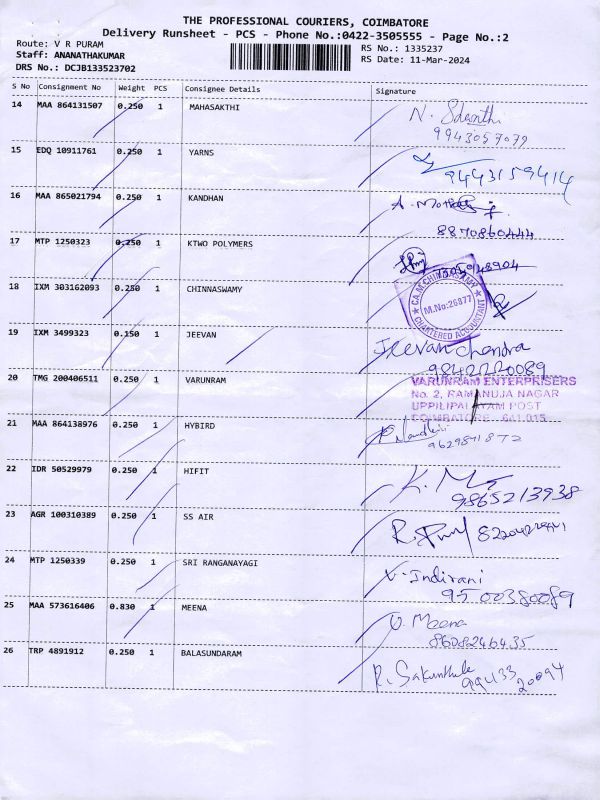 THE PROFESSIONAL COURIERS, COIMBATORE
Delivery Runsheet - PCS - Phone No.:0422-3505555 - Page No.:2
Route: V R PURAM
Staff: ANANATHAKUMAR
DRS No.: DCJB133523702
RS No.: 1335237
RS Date: 11-Mar-2024
S No Consignment No Weight PCS Consignee Details Signature
14 MAA 864131507 0.250 1 MAHASAKTHI
9943057079
15 EDQ 10911761 0.250 1 YARNS
9443159414
16 MAA 865021794 0.250 1 KANDHAN
8870860444
17 MTP 1250323 0.250 1 KTWO POLYMERS
18 IXM 303162093 0.250 1 CHINNASWAMY
CA.M.CHINNASAMY
M.No:26877
CHARTERED ACCOUNTANT
19 IXM 3499323 0.150 1 JEEVAN
Jeevan Chandra
9842220089
20 TMG 200406511 0.250 1 VARUNRAM
VARUNRAM ENTERPRISERS
No. 2, RAMANUJA NAGAR
UPPILIPALAYAM POST
COIMBATORE - 641 015
21 MAA 864138976 0.250 1 HYBIRD
22 IDR 50529979 0.250 1 HIFIT
9865213938
23 AGR 100310389 0.250 1 SS AIR
24 MTP 1250339 0.250 1 SRI RANGANAYAGI
V. Indirani
9500380089
25 MAA 573616406 0.830 1 MEENA
U. Meena
8608246435
26 TRP 4891912 0.250 1 BALASUNDARAM
R. Sakunthala
99433 20094